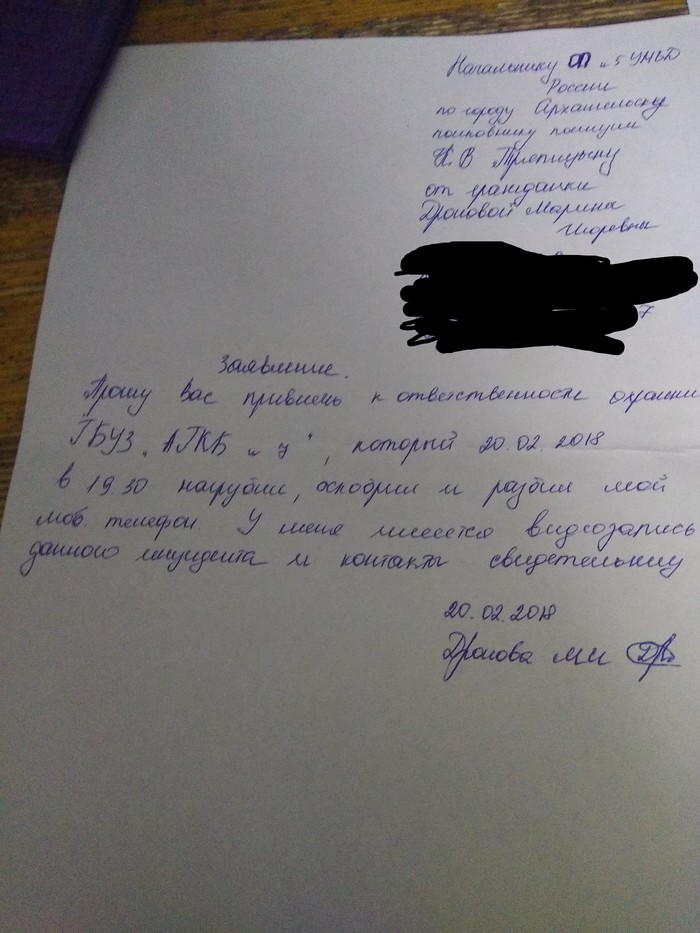 Начальнику ОП №5 УМВД
России
по городу Архангельску
полковнику полиции
К.В
от гражданки
Марины
Игоревны
7
Заявление.
Прошу Вас привлечь к ответственности охранни
ГБУЗ „АГКБ № 7", который 20.02.2018
в 19.30 нагрубил, оскорбил и разбил мой
моб. телефон. У меня имеется видеозапись
данного инцидента и контакты свидетельниц
20.02.2018
МИ